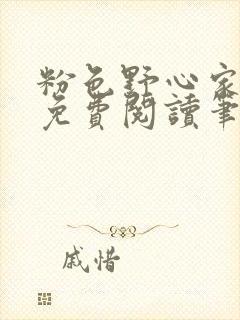 粉色野心家
免費閱讀筆
戚惜